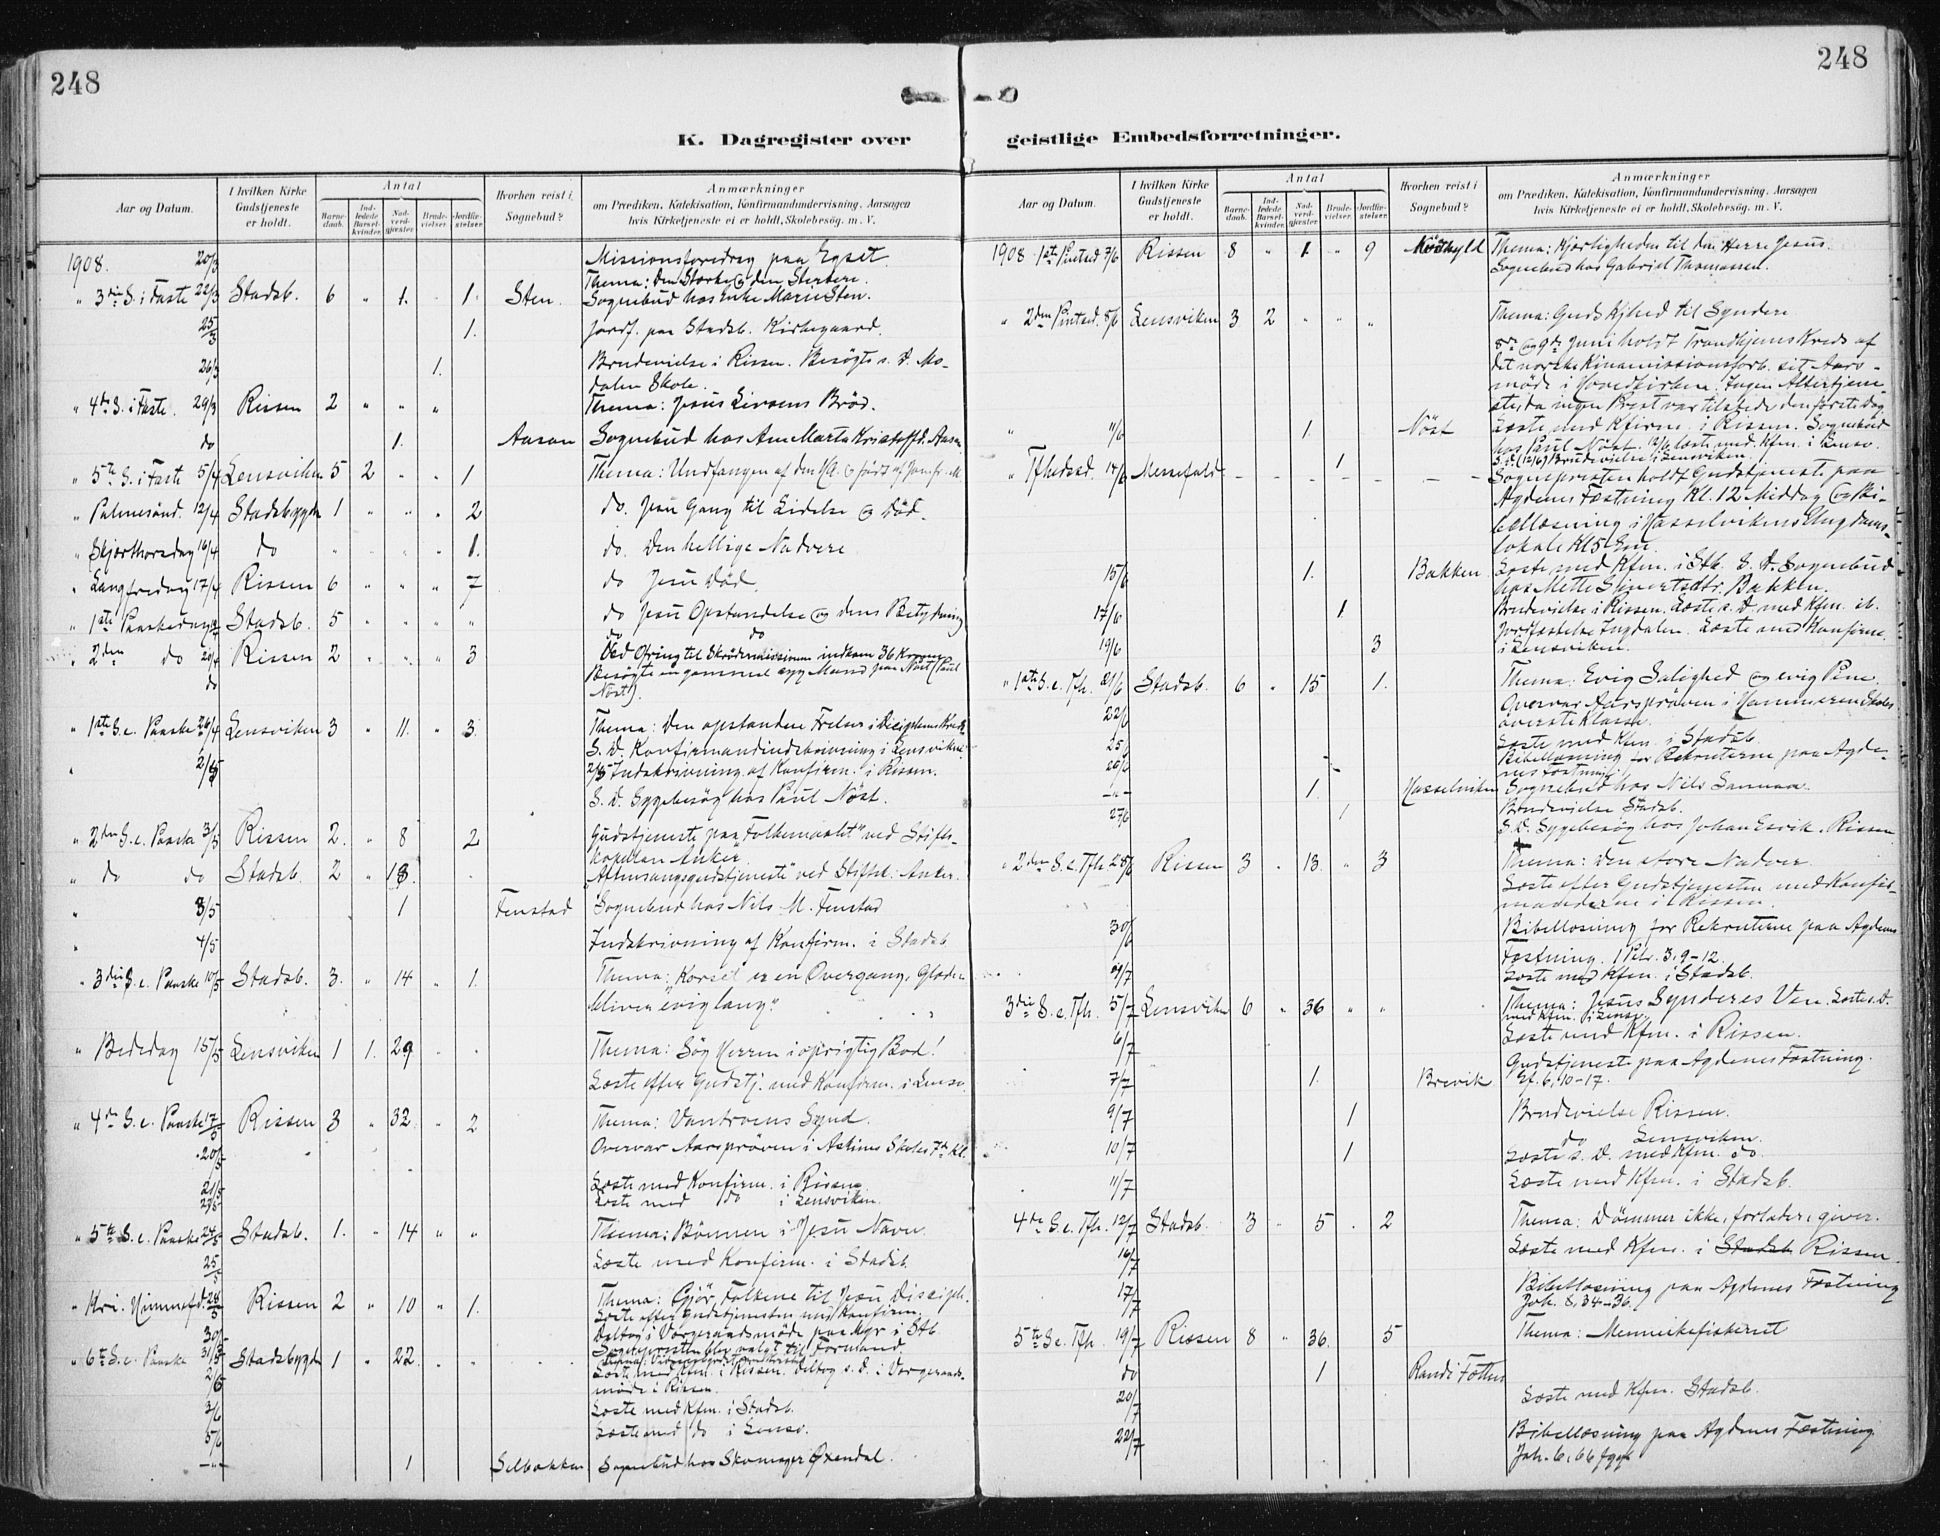 248
248
K. Dagregister over geistlige Embedsforretninger.
Aar og Datum.
I hvilken Kirke Gudstjeneste er holdt.
Antal
Barnedaab.
Indledede Barselkvinder.
Nadverdgjæster.
Brudevielser.
Jordfæstelser.
Hvorhen reist i Sognebud?
Anmærkninger
om Prædiken, Katekisation, Konfirmandundervisning, Aarsagen
hvis Kirketjeneste ei er holdt, Skolebesøg. m. V.
1908. 20/3 Missionsforedrag paa Egset.
Thema: Den Stærke og den Sterkere.
" 3die S. i Faste 22/3 Stadsb. 6 " 1. 1. Sten. Sognebud hos Enke Marie Sten.
25/3 1. Jordf. paa Stadsb. Kirkegaard.
26/3 1. Brudevielse i Rissen. Besøgte s. D. Mo-
dalen Skole.
" 4de S. i Faste. 29/3 Rissen 2 " " " Thema: Jesus Livsens Brød.
do 1. Aasan Sognebud hos Ane Marta Kristoffd. Aasan
" 5te S. i Faste 5/4 Lensviken 5 2 " " 1 Thema: Undfangen af den H.A. og født af Jomfr. M.
" Palmesønd. 12/4 Stadsbygden 1 " " " 2 do. Jesu Gang til Lidelse og Død.
" Skjærthorsdag 16/4 do " " " " 1. do. Den hellige Nadvere
" Langfredag 17/4 Rissen 6 " " " 7 do Jesu Død.
" 1ste Paaskedag Stadsb. 5 " " " " do Jesu Opstandelse og dens Betydning
" 2den do 20/4 Rissen 2 " " " 3 do do
Ved Ofring til indkom 36 Kroner
do Besøgte en gammel syg Mand paa Nøst (Paul
Nøst).
" 1ste S. e. Paaske 26/4 Lensviken 3 " 11. " 3. Thema: Den opstandne Frelser i Disciplenes Kreds.
S. D. Konfirmandindskrivning i Lensviken.
" 2/5 2/5 Indskrivning af Konfirm. i Rissen.
S. D. Sygebesøg hos Paul Nøst.
" 2den S. e. Paaske 3/5 Rissen 2. " 8 2 Gudstjeneste paa "Folkemaalet" ved Stifts-
kapellan Anker.
" do do Stadsb. 2 " 18. "Aftensangsgudstjeneste" ved Stiftsk. Anker.
" 3/5 1 Fenstad Sognebud hos Nils M. Fenstad
" 4/5 Indskrivning af Konfirm. i Stadsb
" 3die S. e. Paaske 10/5 Stadsb. 3. " 14 " 1. Thema: "Korset er en Overgang, Glæden
bliver evig lang."
" Bededag 15/5 Lensviken 1 1. 29 " " Thema: Søg Herren i oprigtig Bod!
Læste efter Gudstj. med Konfirm. i Lensv.
" 4de S. e. Paaske 17/5 Rissen 3 " 32 " 2 Thema: Vantroens Synd.
20/5 Overvar Aarsprøven i Askims Skoles 7de Kl.
21/5 Læste med Konfirm. i Rissen
23/5 Læste med do i Lensviken.
" 5te S. e. Paaske 24/5 Stadsb. 1. " 14 " " Thema: Bønnen i Jesu Navn.
25/5 Læste med Konfirm. i Stadsb.
" Kri. Himmelfd. 28/5 Rissen 2 " 10 " 1. Thema: Gjør Folkene til Jesu Discipl.
Læste efter Gudstjenesten med Konfirm.
30/5 Deltog i Vergeraadsmøde paa Myr i Stb.
Sognepresten blev valgt til Formand.
" 6te S. e. Paaske 31/5 Stadsbygden 1 " 22 " "
2/6 Læste med Kfm. i Rissen. Deltog s. D. i Vergeraads-
møde i Rissen.
3/6 Læste med Kfm. i Stadsb.
5/6 Læste med do i Lensv.
—"— 1 Selbakken Sognebud hos Skomager Øxendal.
Aar og Datum.
I hvilken Kirke Gudstjeneste er holdt.
Antal
Barnedaab.
Indledede Barselkvinder.
Nadverdgjæster.
Brudevielser.
Jordfæstelser.
Hvorhen reist i Sognebud?
Anmærkninger
om Prædiken, Katekisation, Konfirmandundervisning, Aarsagen
hvis Kirketjeneste ei er holdt, Skolebesøg. m. V.
1908 1ste Pintsed 7/6 Rissen 8 " 1. " 9 Thema: Kjærligheden til den Herre Jesus.
Sognebud hos Gabriel Thomassen.
" 2den Pintsed. 8/6 Lensviken 3 2 " " " Thema: Guds Kjhed til Syndere
8de og 9de Juni holdt Trondhjems Kreds af
det norske Kinamissionsforb. sit Aars-
møde i Hovedkirken. Ingen Altertjene-
ste, da ingen Prest var tilstede den første Dag.
" 11/6 1. Nöst Læste med Kfirm. i Rissen. Sognebud
hos Paul Nöst. 12/6 læste med Kfm. i Lensv.
1 S. D. (12/6) Brudevielse i Lensviken.
" Tfhedssd. 14/6 Messefald - - - - - - - Sognepresten holdt Gudstjeneste paa
Agdenes Fæstning Kl. 12 Middag og Bi-
bellæsning i Hasselvikens Ungdoms-
lokale Kl 5 Em.
15/6 1. Bakken. Læste med Kfm. i Stb. S. D. Sognebud
hos Mette Sivertsdtr. Bakken.
17/6 1 Brudevielse i Rissen. Læste s. D. med Kfm. ib.
19/6 3 Jordfæstelse Ingdalen. Læste med Konfirm.
i Lensviken.
" 1ste S. e. Tfh. 21/6 Stadsb. 6 " 15 1. Thema: Evig Salighed og evig Pine.
22/6 Overvar Aarsprøven i Hammeren Skoles
øverste Klasse.
25/6 Læste med Kfm. i Stadsb.
26/6 Bibellæsning for Rekruterne paa Agde-
nes Fæstning.
-"- 1. Hasselviken Sognebud hos Nils Sannan.
27/6 1 Brudevielse Stadsb.
S. D. Sygebesøg hos Johan Esvik, Rissen
" 2den S. e. Tfh. 28/6 Rissen 3 " 13 " 3 Thema: Den store Nadver.
Læste efter Gudstjenesten med Konfir-
manderne i Rissen.
30/6 Bibellæsning for Rekruterne paa Agdenes
Fæstning. 1 Petr. 3, 9-12.
/7 Læste med Kfm. i Stadsb.
3die S. e. Tfh. 5/7 Lensviken 6 " 36 " " Thema: Jesus Synderes Ven. Læste s. D.
med Kfm. i Lensv.
6/7 Læste med Kfm. i Rissen.
7/7 1. Brevik Gudstjeneste paa Agdenes Fæstning.
Ef. 6, 10-17.
9/7 1 Brudevielse Rissen.
10/7 1 do Lensviken.
Læste s. D. med Kfm. do.
11/7 Læste med Kfm. i Stadsb.
4de S. e. Tfh. 12/7 Stadsb. 3 " 5 . 2 Thema: Dømmer ikke, forlader, giver.
16/7 Læste med Kfm. i Stadsb. Rissen.
17/7 Bibellæsning paa Agdenes Fæstning
Joh. 8, 34-36.
5te S. e. Tfh. 19/7 Rissen 8 " 36. 5 Thema: Menneskefiskeriet
do 1 Randi
20/7 Læste med Kfm. Stadsb.
22/7 Bibellæsning paa Agdenes Fæstning
Joh. 6, 66 fgg.